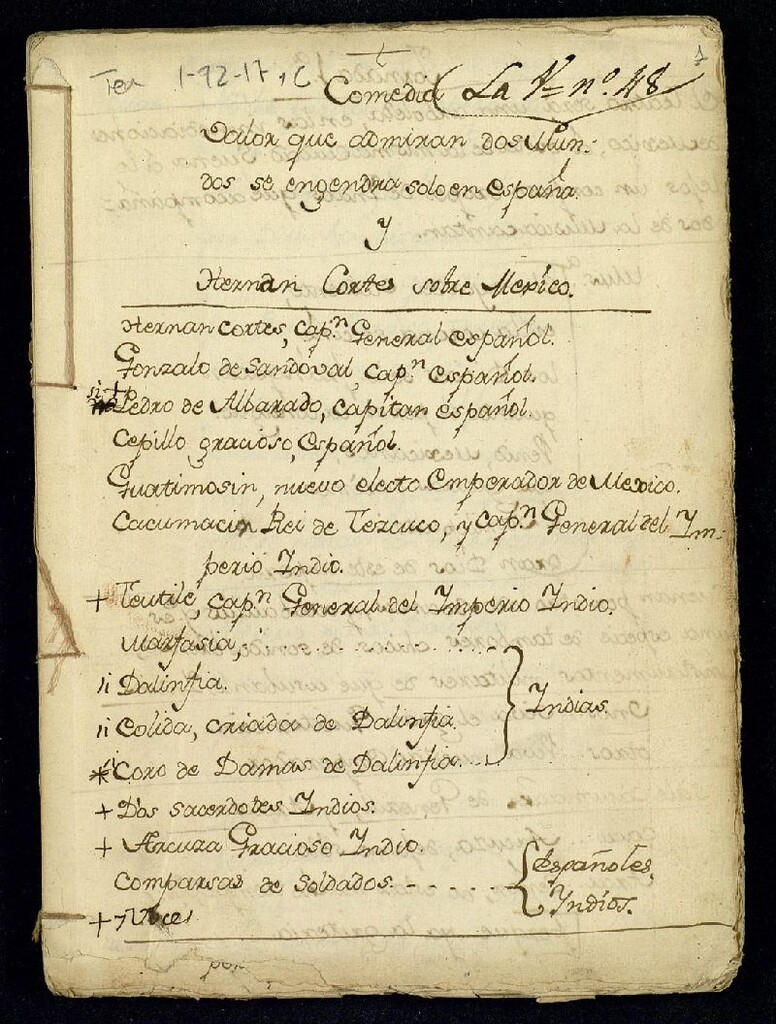 Tea 1-92-17, C
1
Comedia La V= nº. 48
Valor que admiran dos Mun-
dos se engendra solo en España.
y
Hernan Cortes sobre Mexico.
Hernan Cortes, cap.n General español.
Gonzalo de Sandoval, cap.n español.
Pedro de Albarado, capitan español.
Cepillo, gracioso, español.
Guatimosin, nuevo electo Emperador de Mexico.
Cacumacin Rei de Tezcuco, y cap.n General del Im-
perio Indio.
+ Teutile, cap.n General del Imperio Indio.
Marfasia,
ii Dalinfia.
ii Colida, criada de Dalinfia.
Indias.
* Coro de Damas de Dalinfia.
+ Dos sacerdotes Indios.
+ Arcuza Gracioso Indio.
Comparsas de Soldados. - - - - - -
Españoles,
Indios.
+ 7 Voces
por